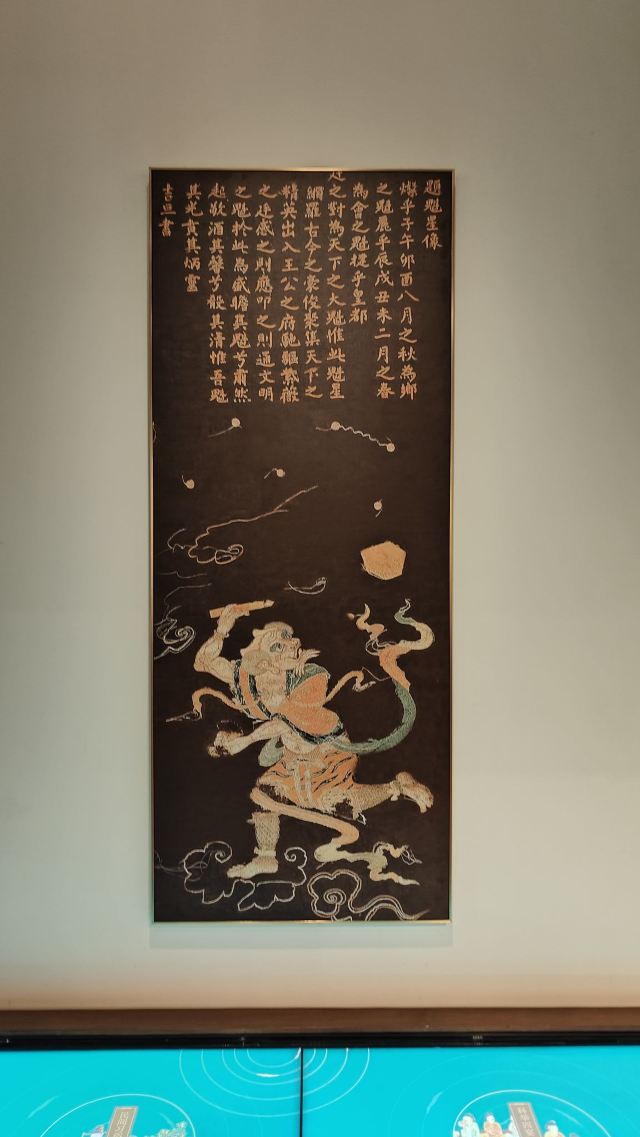 題魁星像
燦乎子午卯酉八月之秋為鄉
之魁麗乎辰戌丑未二月之春
為會之魁從乎皇都
之對為天下之大魁惟此魁星
網羅古今之豪俊聚渠天下之
精英出入王公之府馳驅紫薇
之垣感之則應叩之則通文明
之魁於此為盛瞻其魁兮肅然
起歌酒其馨兮殽其清惟吾魁
其光賁其炳靈
吉旦書